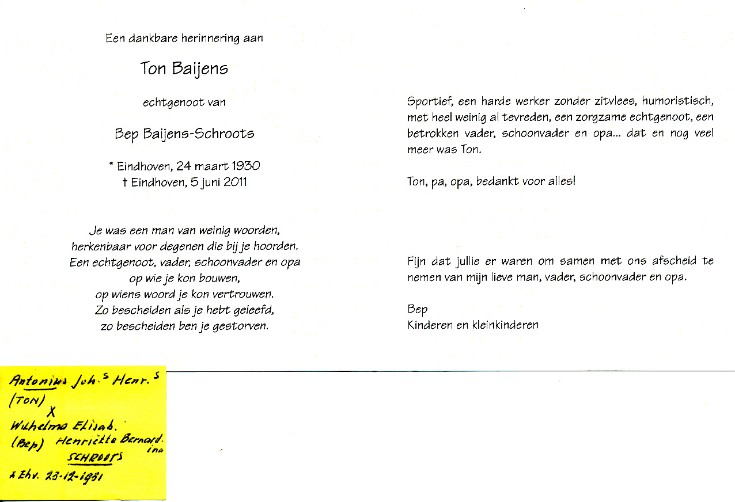 Een dankbare herinnering aan
Ton Baijens
echtgenoot van
Bep Baijens-Schroots
* Eindhoven, 24 maart 1930
† Eindhoven, 5 juni 2011
Je was een man van weinig woorden,
herkenbaar voor degenen die bij je hoorden.
Een echtgenoot, vader, schoonvader en opa
op wie je kon bouwen,
op wiens woord je kon vertrouwen.
Zo bescheiden als je hebt geleefd,
zo bescheiden ben je gestorven.
Sportief, een harde werker zonder zitvlees, humoristisch,
met heel weinig al tevreden, een zorgzame echtgenoot, een
betrokken vader, schoonvader en opa... dat en nog veel
meer was Ton.
Ton, pa, opa, bedankt voor alles!
Fijn dat jullie er waren om samen met ons afscheid te
nemen van mijn lieve man, vader, schoonvader en opa.
Bep
Kinderen en kleinkinderen
Antonius Joh.s Henr.s
(TON)
X
Wilhelma Elisab.
(Bep) Henriëtta Bernard.
ina
SCHROOTS
* Ehv. 23-12-1931